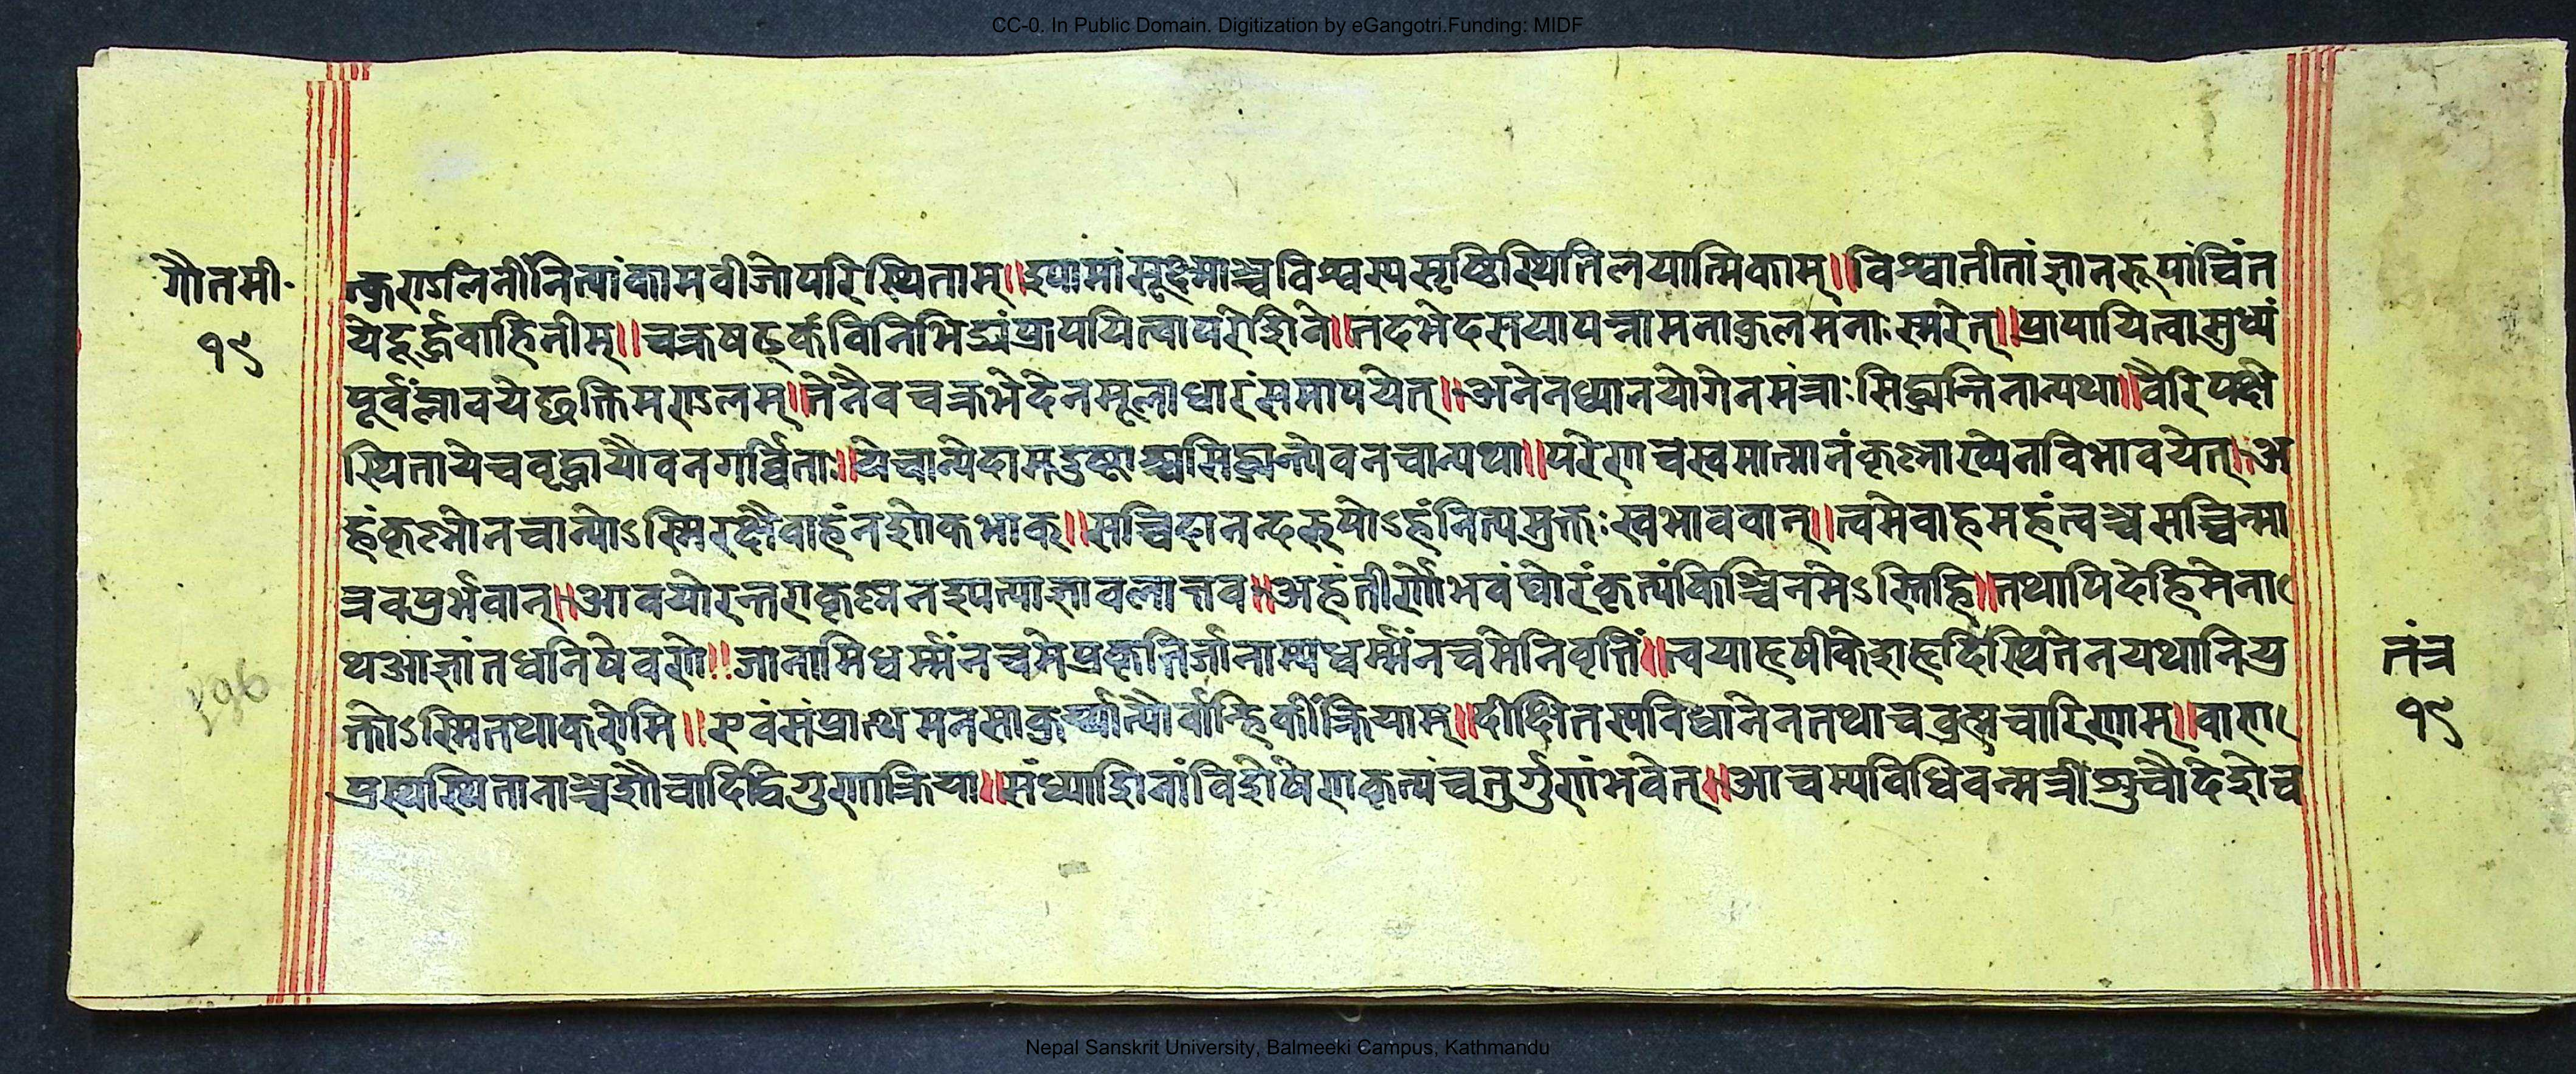 CC-0. In Public Domain. Digitization by eGangotri.Funding: MIDF
गौतमी॰
१९
त्कुण्डलिनींनित्यांकामवीजोपरिस्थिताम्॥श्यामांसूक्ष्माञ्चविश्वस्यसृष्टिस्थितिलयात्मिकाम्॥विश्वातीतांज्ञानरूपांचिंत
येदूर्द्ध्ववाहिनीम्॥चक्रषट्कंविनिभिद्यंप्रापयित्वापरेशिवे॥तदभेदसयापन्नामनाकुलमनाःस्मरेत्॥प्रापायित्वासुध्यं
पूर्वंप्लावयेच्छक्तिमण्डलम्॥तेनैवचक्रभेदेनमूलाधारंसमापयेत्॥अनेनध्यानयोगेनमंत्राःसिद्ध्यन्तिनान्यथा॥वैरिपक्षे
स्थितायेचवृद्धायौवनगर्व्विताः॥येचान्येदासदुष्टाश्चसिद्ध्यन्त्येवनचान्यथा॥परेणचस्वमात्मानंकृष्णाख्येनविभावयेत्॥अ
हंकृष्णोनचान्योऽस्मिरक्षैवाहंनशोकभाक्॥सच्चिदानन्दरूपोऽहंनित्यमुक्तःस्वभाववान्॥त्वमेवाहमहंत्वञ्चसच्चिन्मा
त्रवपुर्भवान्॥आवयोरन्तराकृष्णनश्यत्याज्ञावलात्तव॥अहंतीर्णोभवंघोरंकृत्यंकिञ्चिनमेऽस्तिहि॥तथापिदेहिमेना
थआज्ञांतधनिषेवणे॥जानामिधर्म्मंनचमेप्रकृतिर्जानाम्यधर्म्मंनचमेनिवृत्तिं॥त्वयाहृषीकेशहृदिस्थितेनयथानियु
क्तोऽस्मितथाकरोमि॥एवंसंप्रार्थ्यमनसाकुर्य्यात्पौर्वाह्निकींक्रियाम्॥दीक्षितस्यविधानेनतथाचव्रह्मचारिणाम्॥वाण
प्रस्थस्थितानाञ्चशौचादिद्विगुणाक्रिया॥संध्यादिनांविशेषेणकृत्यंचतुर्गुणंभवेत्॥आचम्यविधिवन्मत्रीशुचौदेशेच
तंत्र
१९
196
Nepal Sanskrit University, Balmeeki Campus, Kathmandu